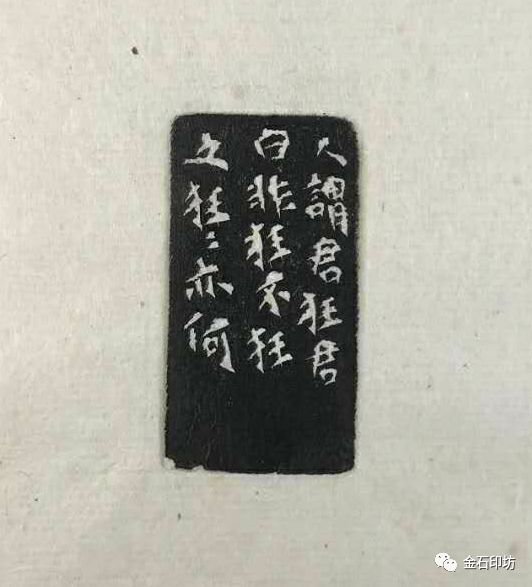 人謂君狂君
曰非狂不狂
文狂〻亦何
金石印坊